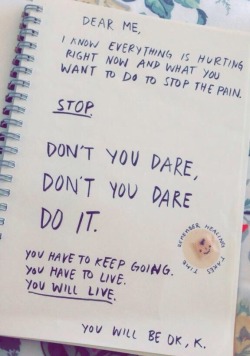 DEAR ME,
I KNOW EVERYTHING IS HURTING
RIGHT NOW AND WHAT YOU
WANT TO DO TO STOP THE PAIN.
STOP.
DON'T YOU DARE,
DON'T YOU DARE
DO IT.
REMEMBER HEALING TAKES TIME
YOU HAVE TO KEEP GOING.
YOU HAVE TO LIVE.
YOU WILL LIVE.
YOU WILL BE OK, K.